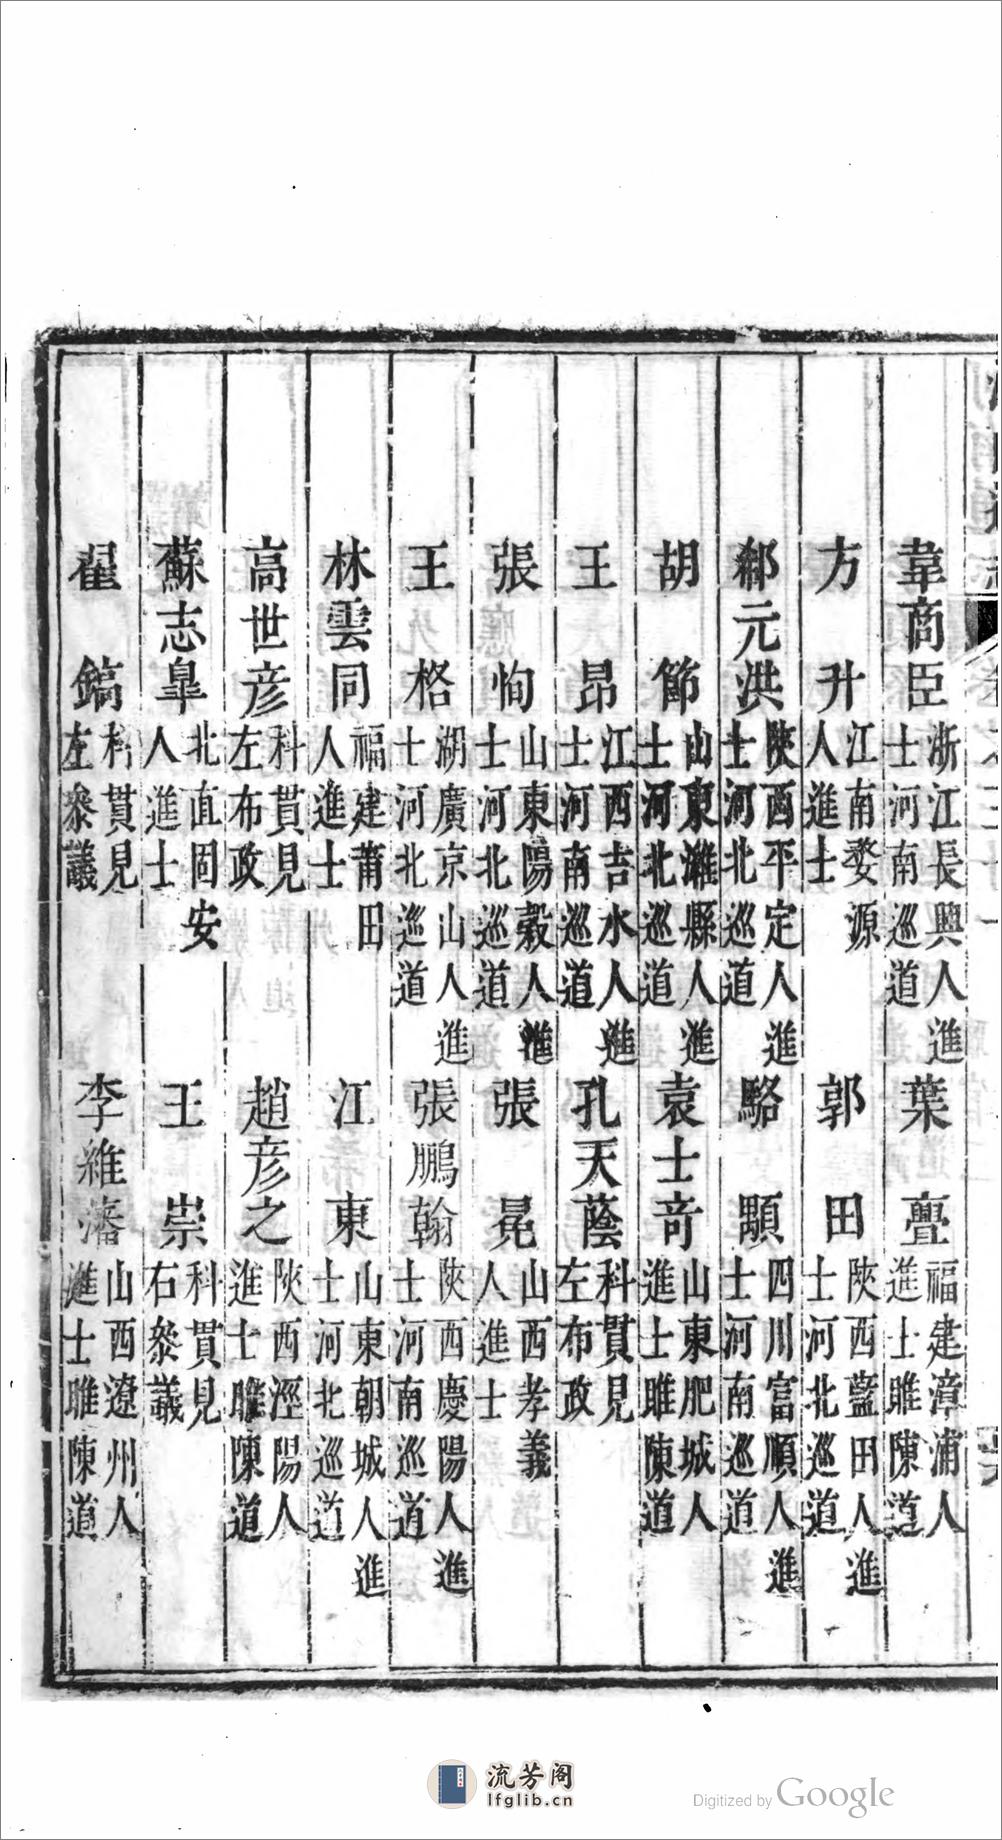 韋商臣 浙江長興人進士河南巡道
葉亹 福建漳浦人進士睢陳道
方升 江南婺源人進士
郭田 陝西藍田人進士河北巡道
郗元洪 陝西平定人進士河北巡道
駱顒 四川富順人進士河南巡道
胡節 山東濰縣人進士河北巡道
袁士奇 山東肥城人進士睢陳道
王昂 江西吉水人進士河南巡道
孔天蔭 科貫見左布政
張恂 山東陽穀人進士河北巡道
張冕 山西孝義人進士
王格 湖廣京山人進士河北巡道
張鵬翰 陝西慶陽人進士河南巡道
林雲同 福建莆田人進士
江東 山東朝城人進士河北巡道
高世彦 科貫見左布政
趙彦之 陝西涇陽人進士睢陳道
蘇志臯 北直固安人進士
王崇 科貫見右叅議
翟鎬 科貫見左叅議
李維藩 山西遼州人進士睢陳道
流芳阁
lfglib.cn
Digitized by Google